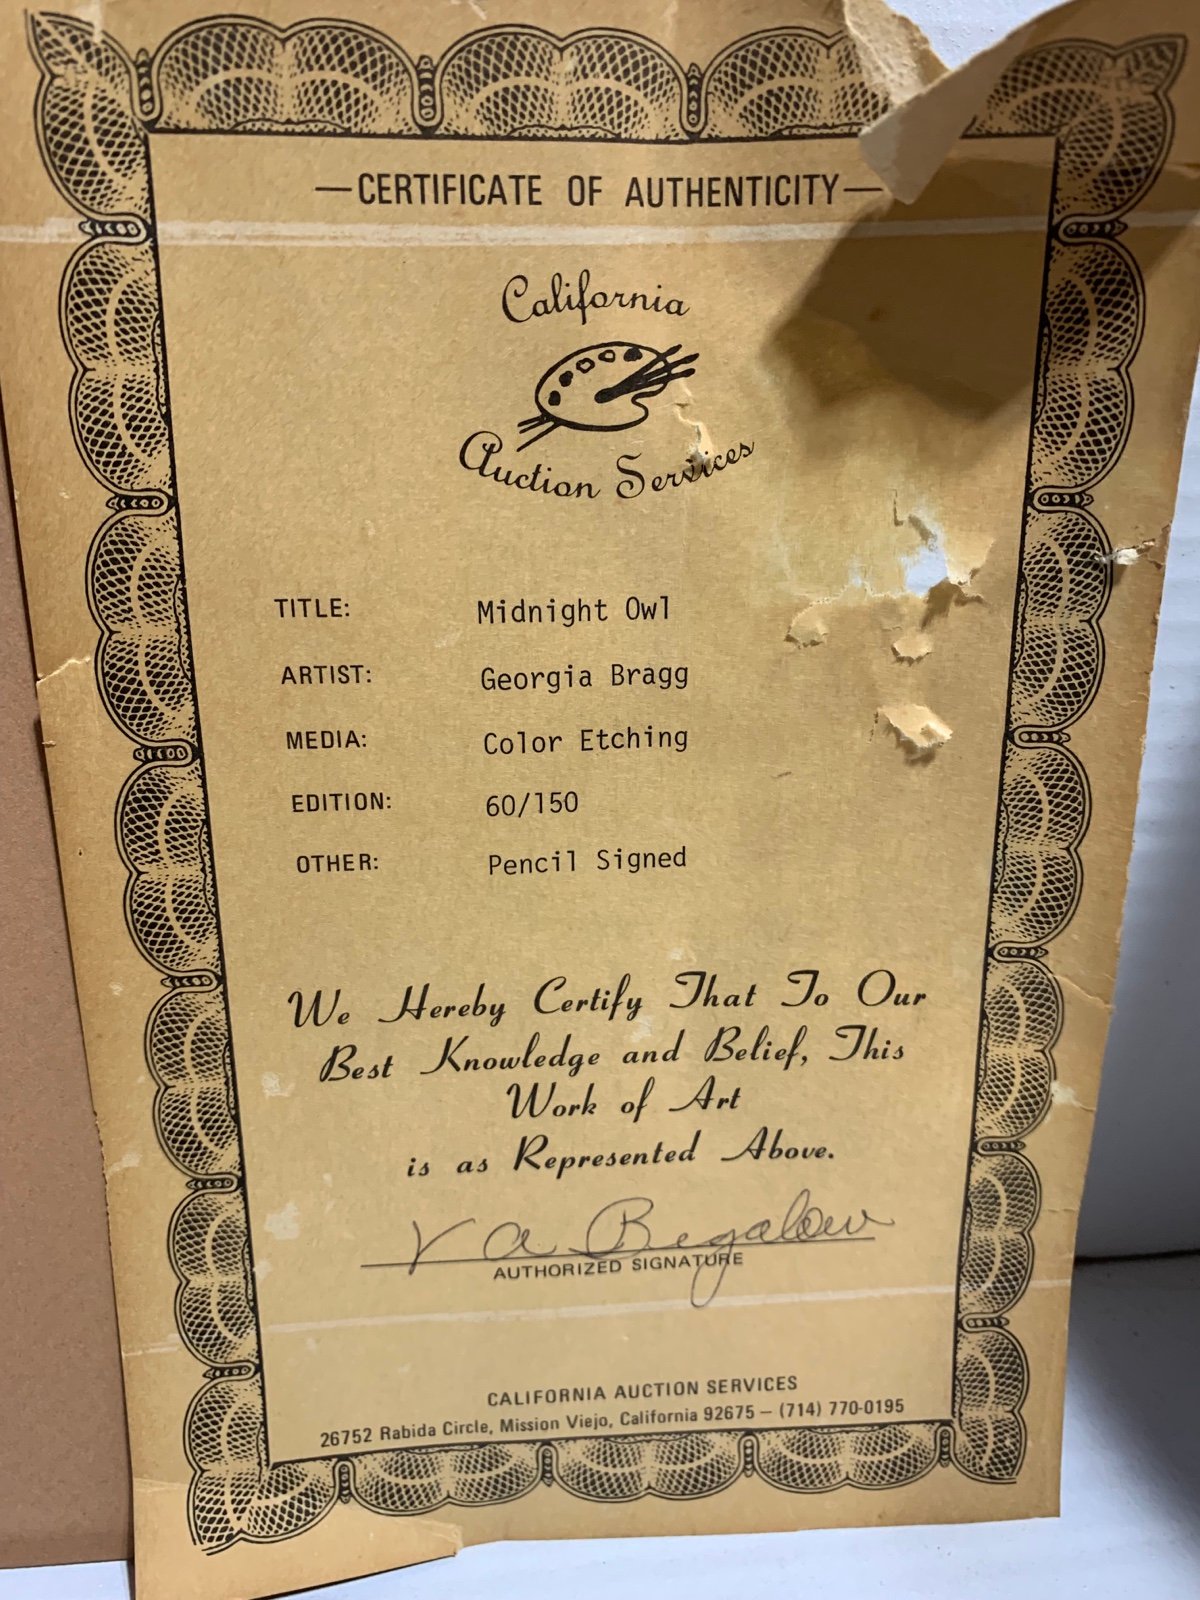 —CERTIFICATE OF AUTHENTICITY—
California
Auction Services
TITLE: Midnight Owl
ARTIST: Georgia Bragg
MEDIA: Color Etching
EDITION: 60/150
OTHER: Pencil Signed
We Hereby Certify That To Our
Best Knowledge and Belief, This
Work of Art
is as Represented Above.
V a Begalow
AUTHORIZED SIGNATURE
CALIFORNIA AUCTION SERVICES
26752 Rabida Circle, Mission Viejo, California 92675 — (714) 770-0195